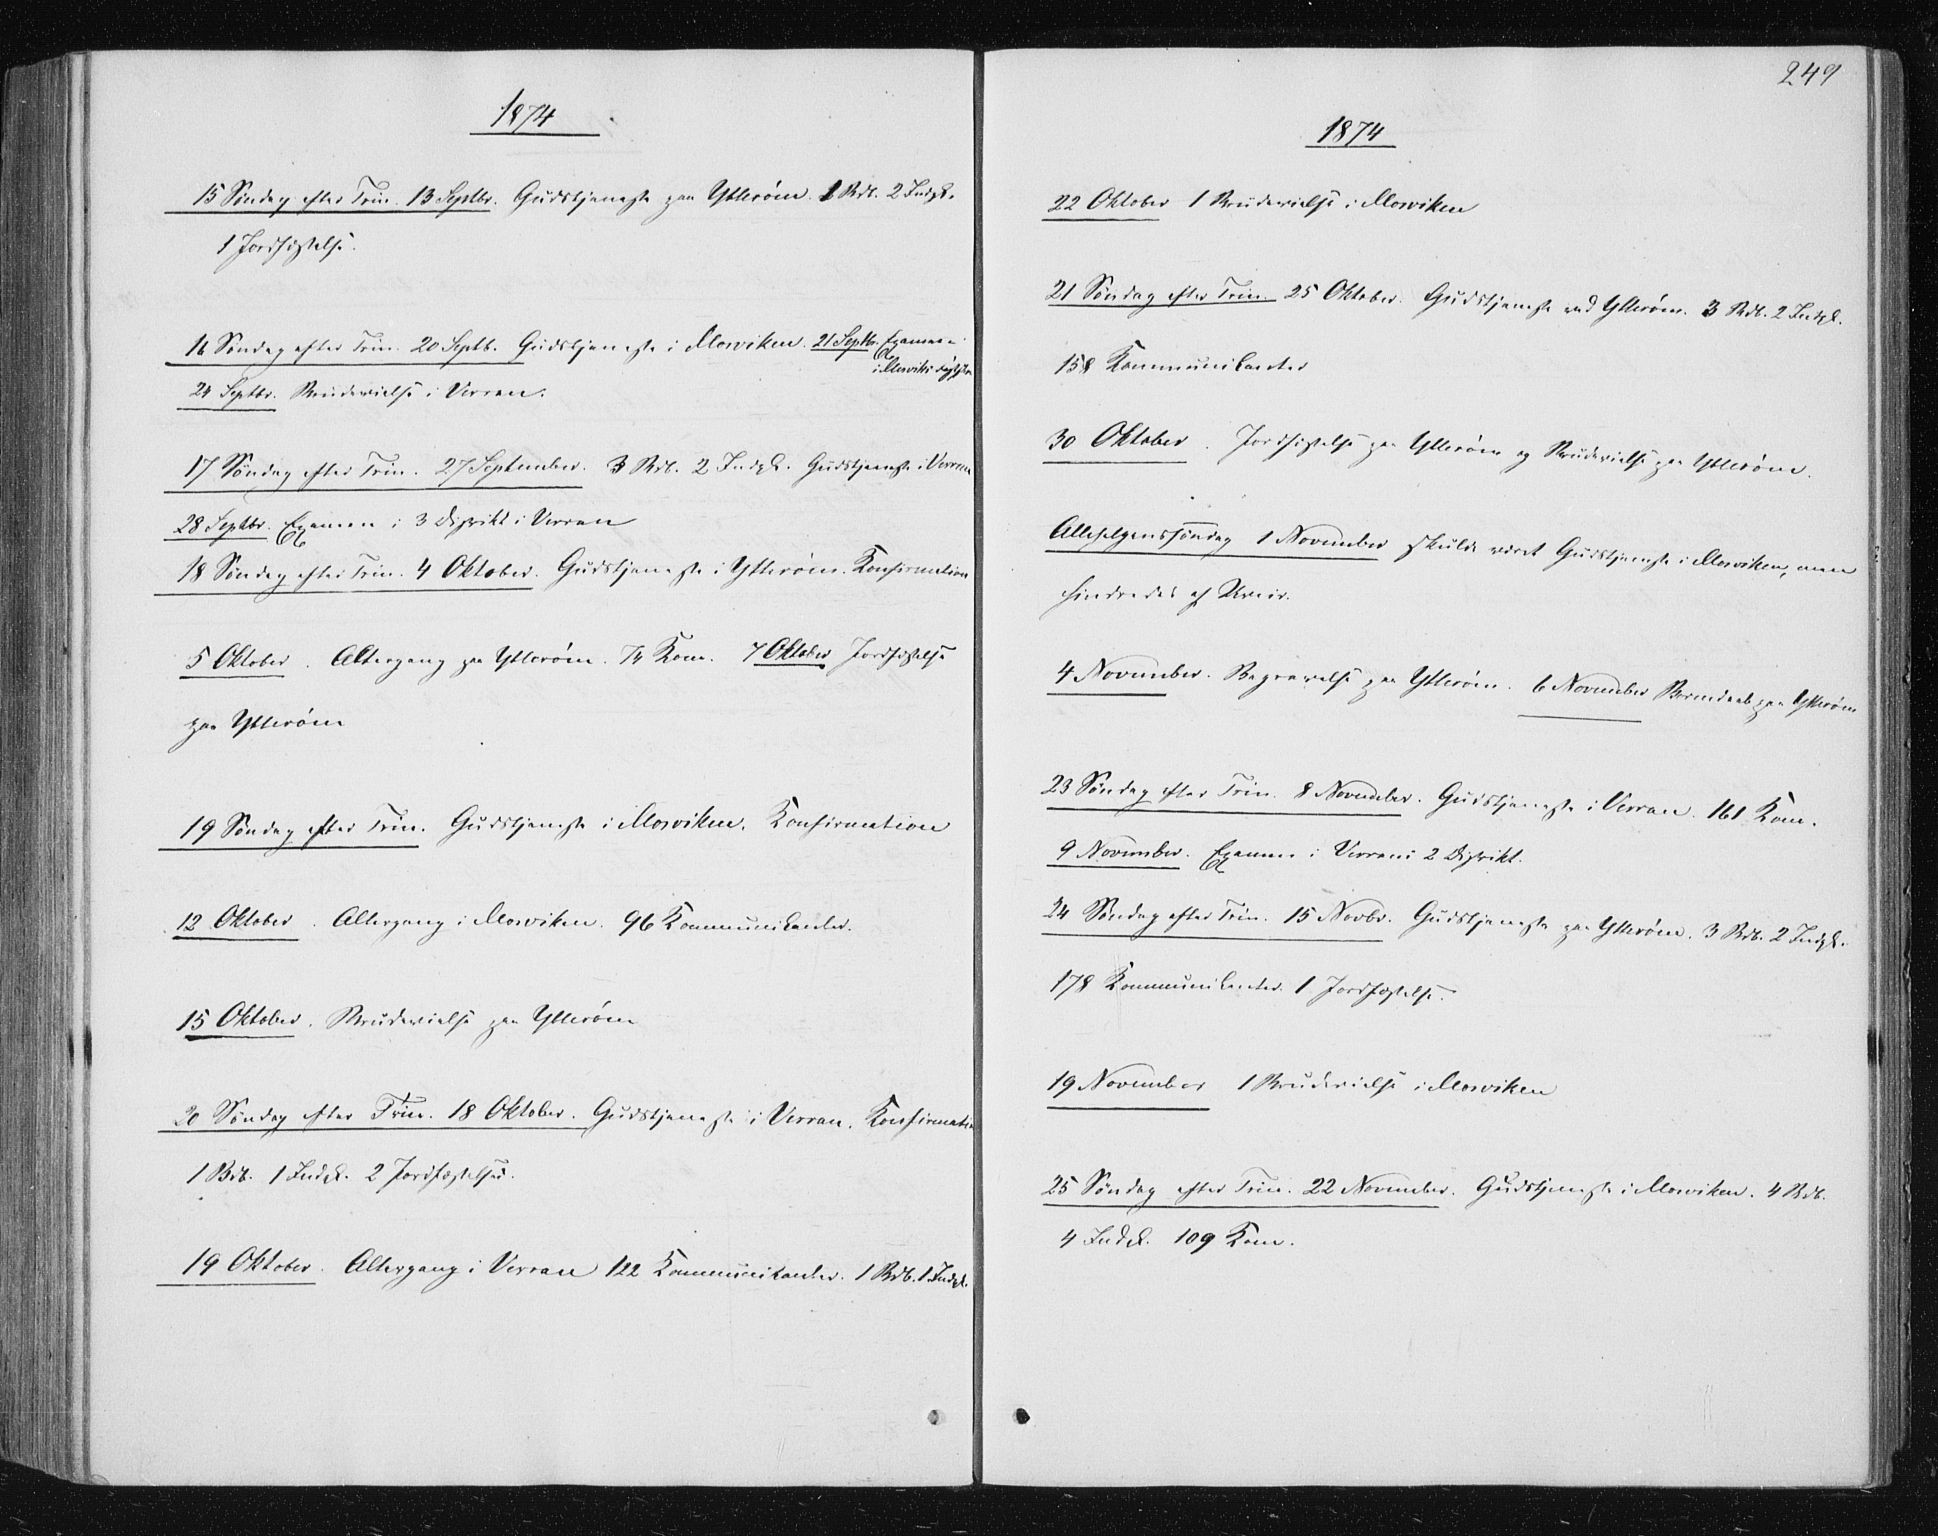 1874
15 Søndag efter Trin. 13 Septbr. Gudstjeneste paa Ytterøen. 1 Bdb. 2 Indgl.
1 Jordfæstelse.
16 Søndag efter Trin. 20 Septb. Gudstjeneste i Mosviken. 21 Septbr. Examen
i Mosvikens
24 Septbr. Brudevielse i Verran.
17 Søndag efter Trin. 27 September. 3 Bdb. 2 Indgl. Gudstjeneste i Verran
28 Septbr. Examen i 3 Distrikt i Verran
18 Søndag efter Trin. 4 Oktober. Gudstjeneste i Ytterøen. Konfirmation
5 Oktober. Altergang paa Ytterøen. 74 Kom. 7 Oktober Jordfæstelse
paa Ytterøen
19 Søndag efter Trin. Gudstjeneste i Mosviken. Konfirmation
12 Oktober. Altergang i Mosviken. 96 Kommunikanter.
15 Oktober. Brudevielse paa Ytterøen
20 Søndag efter Trin. 18 Oktober. Gudstjeneste i Verran. Konfirmation
1 Bdb. 1 Indgl. 2 Jordfæstelser.
19 Oktober. Altergang i Verran 122 Kommunikanter. 1 Bdb. 1 Indgl.
249
1874
22 Oktober 1 Brudevielse i Mosviken
21 Søndag efter Trin. 25 Oktober. Gudstjeneste ved Ytterøen. 3 Bdb. 2 Indgl.
158 Kommunikanter
30 Oktober. Jordfæstelse paa Ytterøen og Brudevielse paa Ytterøen.
Allehelgenssøndag 1 November skulde været Gudstjeneste i Mosviken, men
hindredes af Uveir.
4 November. Begravelse paa Ytterøen. 6 November Barndaab paa Ytterøen
23 Søndag efter Trin. 8 November. Gudstjeneste i Verran. 161 Kom.
9 November. Examen i Verrans 2 Distrikt.
24 Søndag efter Trin. 15 Novbr. Gudstjeneste paa Ytterøen. 3 Bdb. 2 Indgl.
178 Kommunikanter. 1 Jordfæstelse.
19 November 1 Brudevielse i Mosviken
25 Søndag efter Trin. 22 November. Gudstjeneste i Mosviken. 4 Bdb.
4 Indgl. 109 Kom.